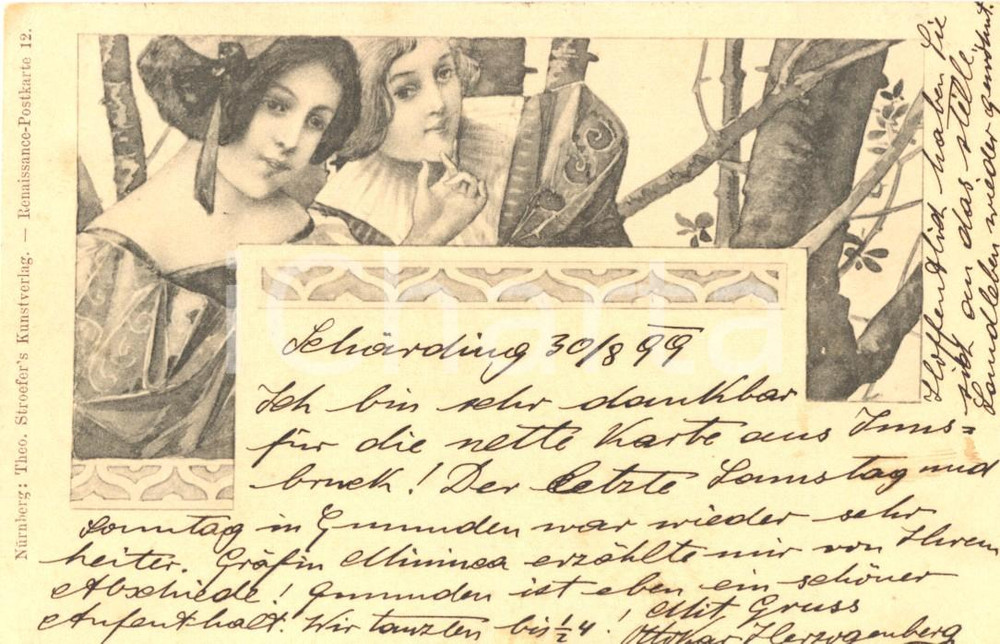 Nürnberg: Theo. Stroefer's Kunstverlag. — Renaissance-Postkarte 12.
Schärding 30/8 99
Ich bin sehr dankbar
für die nette Karte aus Inns=
bruck! Der letzte Samstag und
Sonntag in Gmunden war wieder sehr
heiter. Gräfin erzählte mir von Ihrem
Abschiede! Gmunden ist eben ein schöner
Aufenthalt. Wir tanzten bis ½ 4! Mit Gruss
Ottokar Herzogenberg
Hoffentlich haben Sie
sich an das stille
Landleben wieder gewöhnt.
iCharta